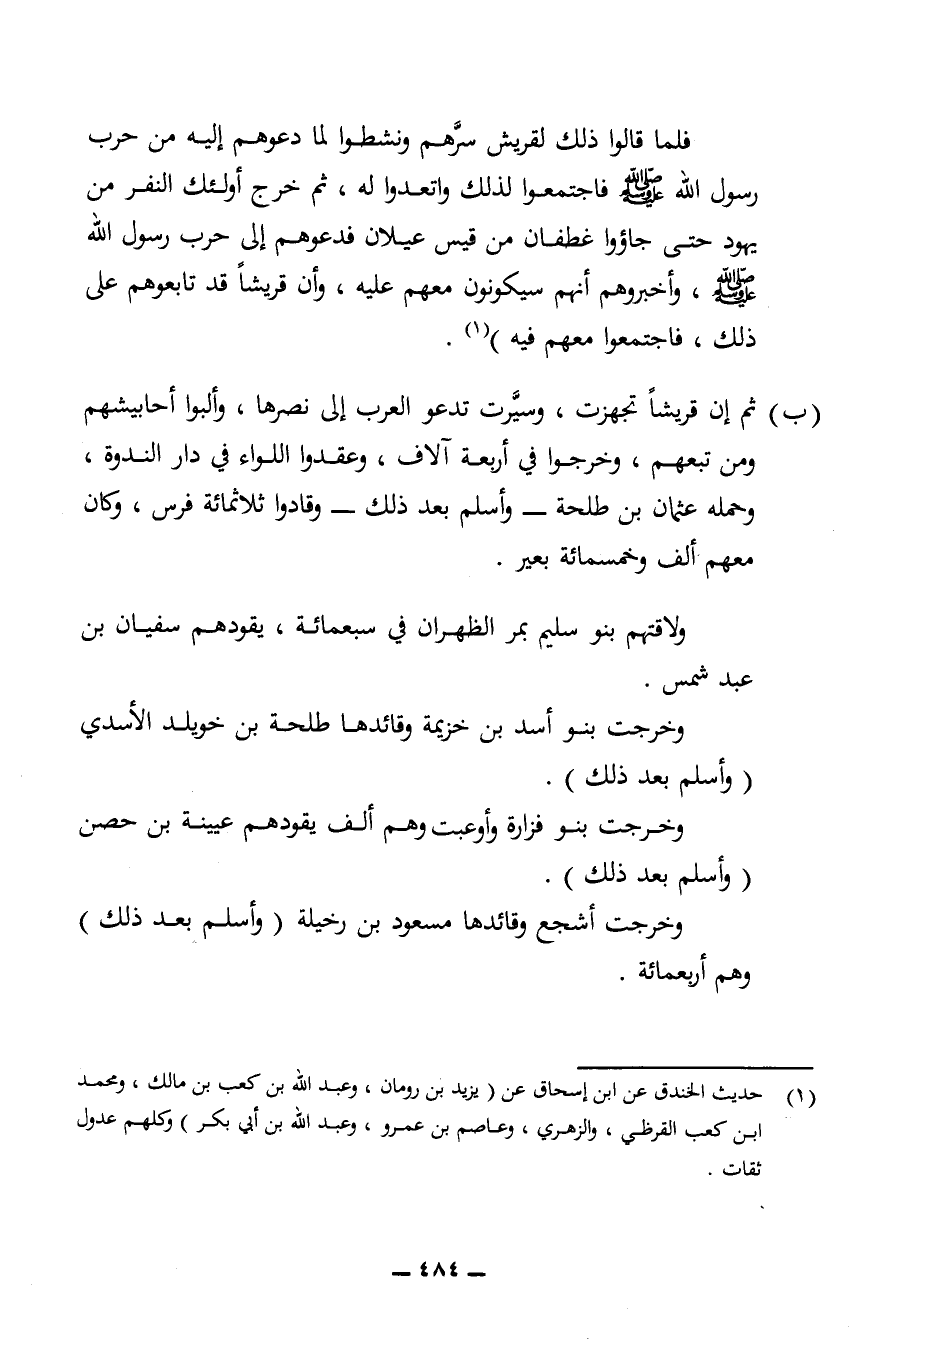 فلما قالوا ذلك لقريش سرَّهم ونشطوا لما دعوهم إليه من حرب
رسول الله ﷺ فاجتمعوا لذلك واتعدوا له ، ثم خرج أولئك النفر من
يهود حتى جاؤوا غطفان من قيس عيلان فدعوهم إلى حرب رسول الله
ﷺ ، وأخبروهم أنهم سيكونون معهم عليه ، وأن قريشاً قد تابعوهم على
ذلك ، فاجتمعوا معهم فيه )(١) .
(ب) ثم إن قريشاً تجهزت ، وسيَّرت تدعو العرب إلى نصرها ، وألبوا أحابيشهم
ومن تبعهم ، وخرجوا في أربعة آلاف ، وعقدوا اللواء في دار الندوة ،
وحمله عثمان بن طلحة ــ وأسلم بعد ذلك ــ وقادوا ثلاثمائة فرس ، وكان
معهم ألف وخمسمائة بعير .
ولاقتهم بنو سليم بمر الظهران في سبعمائة ، يقودهم سفيان بن
عبد شمس .
وخرجت بنو أسد بن خزيمة وقائدها طلحة بن خويلد الأسدي
( وأسلم بعد ذلك ) .
وخرجت بنو فزارة وأوعبت وهم ألف يقودهم عيينة بن حصن
( وأسلم بعد ذلك ) .
وخرجت أشجع وقائدها مسعود بن رخيلة ( وأسلم بعد ذلك )
وهم أربعمائة .
(١) حديث الخندق عن ابن إسحاق عن ( يزيد بن رومان ، وعبد الله بن كعب بن مالك ، ومحمد
ابن كعب القرظي ، والزهري ، وعاصم بن عمرو ، وعبد الله بن أبي بكر ) وكلهم عدول
ثقات .
ــ ٤٨٤ ــ